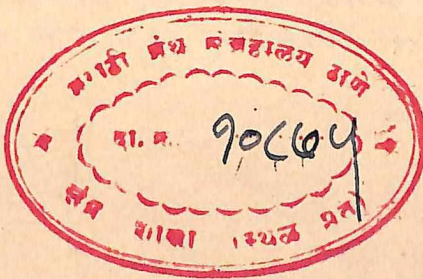 मराठी ग्रंथ संग्रहालय ठाणे
दा. क्र. १०८७५
शाखा (स्थळ प्रत)